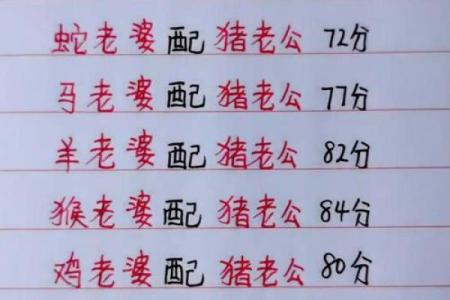 蛇老婆配猪老公 72分
马老婆配猪老公 77分
羊老婆配猪老公 82分
猴老婆配猪老公 84分
鸡老婆配猪老公 80分